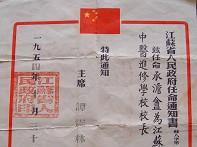 江蘇省人民政府任命通知書
茲任命承澹盦為江蘇
中醫進修學校校長
特此通知
主席
一九五四年
月三十
江蘇省人民政府印